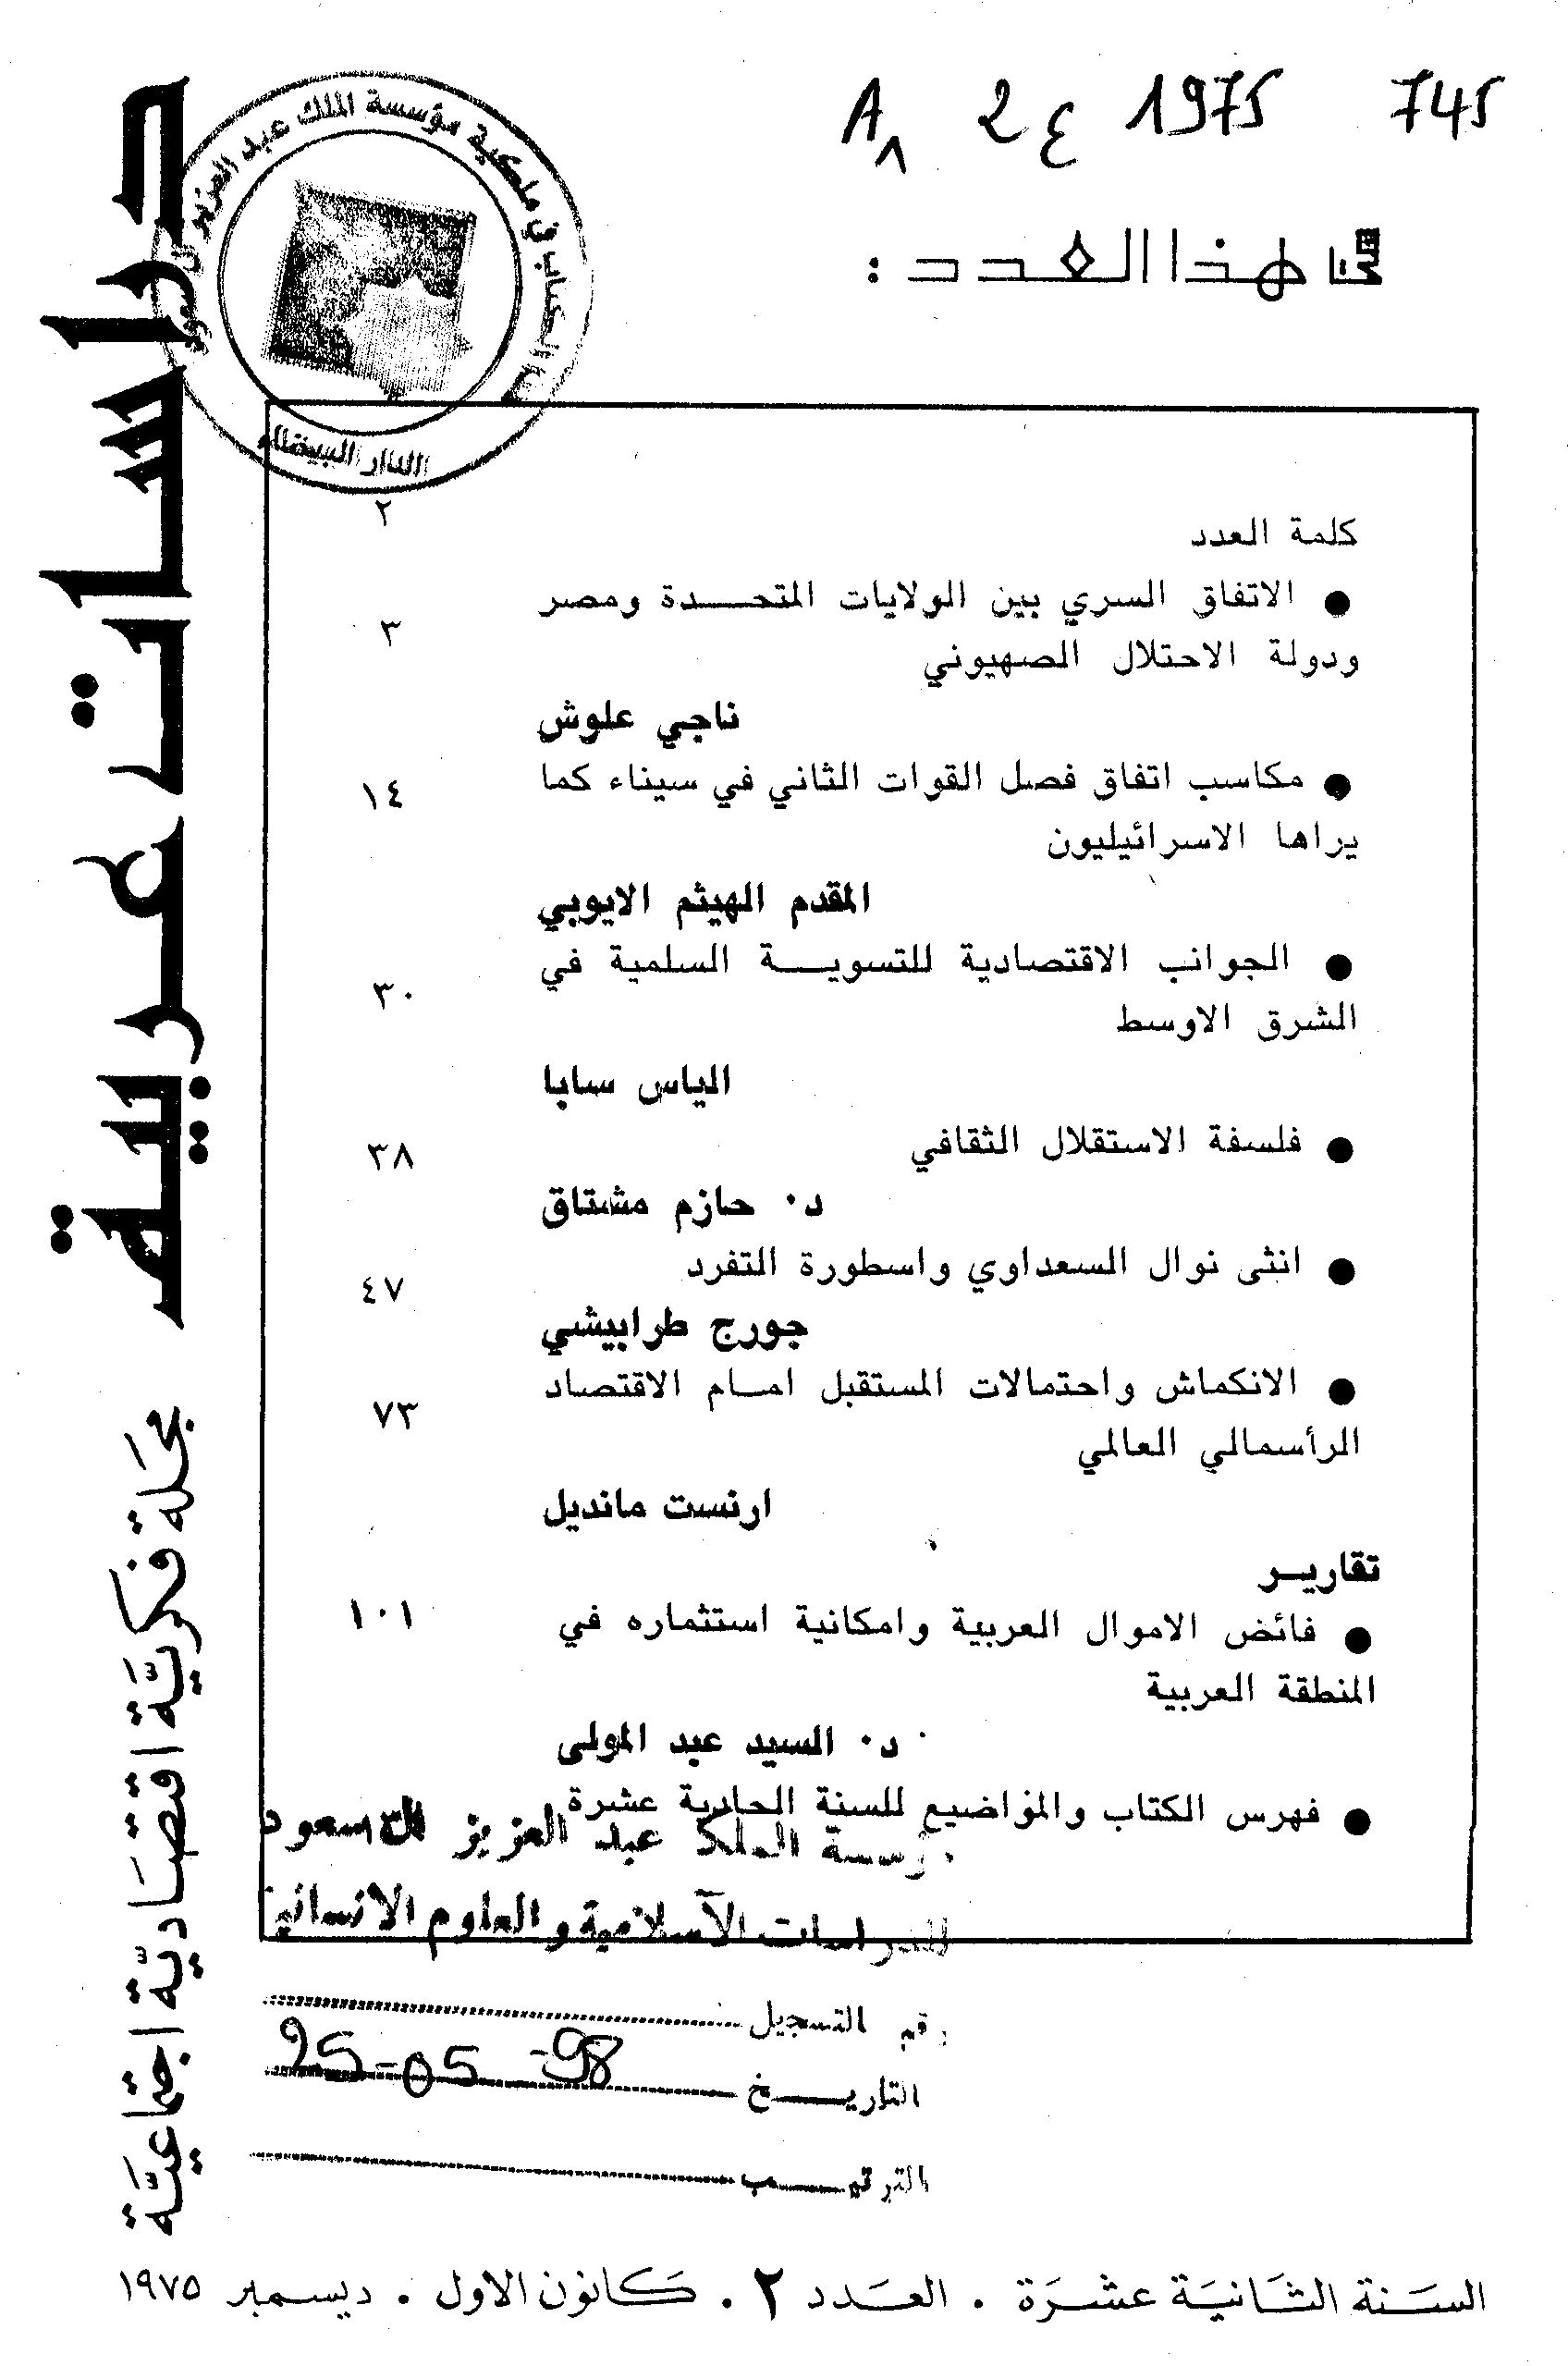 A٨ 2 ع 1975 745
في هذا العدد :
دراسات عربية
مجلة فكرية اقتصادية اجتماعية
الكتاب في ملكية مؤسسة الملك عبد العزيز آل سعود
الدار البيضاء
كلمة العدد ٢
● الاتفاق السري بين الولايات المتحدة ومصر ٣
ودولة الاحتلال الصهيوني
ناجي علوش
● مكاسب اتفاق فصل القوات الثاني في سيناء كما ١٤
يراها الاسرائيليون
المقدم الهيثم الايوبي
● الجوانب الاقتصادية للتسوية السلمية في ٣٠
الشرق الاوسط
الياس سابا
● فلسفة الاستقلال الثقافي ٣٨
د٠ حازم مشتاق
● انثى نوال السعداوي واسطورة التفرد ٤٧
جورج طرابيشي
● الانكماش واحتمالات المستقبل امام الاقتصاد ٧٣
الرأسمالي العالمي
ارنست مانديل
تقارير
● فائض الاموال العربية وامكانية استثماره في ١٠١
المنطقة العربية
د٠ السيد عبد المولى
● فهرس الكتاب والمواضيع للسنة الحادية عشرة
مؤسسة الملك عبد العزيز آل سعود
للدراسات الآسلامية والعلوم الانسانية
رقم التسجيل
التاريخ 25-05-98
الترتيب
السنة الثانية عشرة . العدد ٢ . كانون الاول . ديسمبر ١٩٧٥